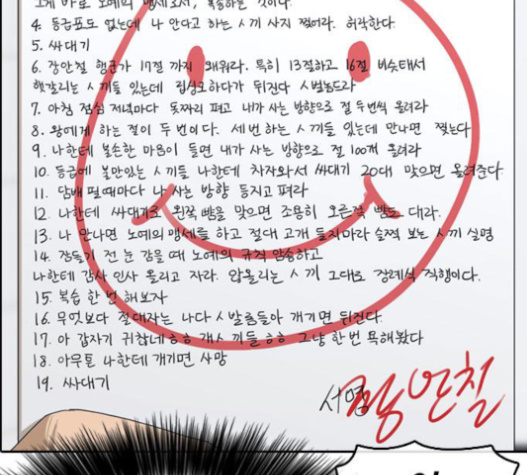 그게 바로 노예의 맹세로서, 복종하는 것이다.
4. 등급표도 없는데 나 안다고 하는 ㅅ끼 사지 찢어라. 허락한다.
5. 싸대기
6. 장안철 행군가 17절 까지 외워라. 특히 13절하고 16절 비슷해서
헷갈리는 ㅅ끼들 있는데 립싱크하다가 뒤진다 ㅅ벌놈드라
7. 아침 점심 저녁마다 돗짜리 펴고 내가 사는 방향으로 절 두번씩 올려라
8. 왕에게 하는 절이 두 번이다. 세번 하는 ㅅ끼들 있는데 만나면 찢는다
9. 나한테 불손한 마음이 들면 내가 사는 방향으로 절 100개 올려라
10. 등급에 불만있는 ㅅ끼들 나한테 찾자와서 싸대기 20대 맞으면 올려준다
11. 담배 필때마다 나 사는 방향 등지고 펴라
12. 나한테 싸대기로 왼짝 뺨을 맞으면 조용히 오른짝 뺨도 대라.
13. 나 만나면 노예의 맹세를 하고 절대 고개 들지마라 슬쩍 보는 ㅅ끼 실명
14. 잠들기 전 눈 감을 때 노예의 규칙 암송하고
나한테 감사 인사 올리고 자라. 안올리는 ㅅ끼 그대로 장례식 직행이다.
15. 복습 한 번 해보자
16. 무엇보다 절대자는 나다 ㅅ발롬들아 개기면 뒤진다.
17. 아 갑자기 귀찮네 ㅎㅎ 개ㅅ끼들 ㅎㅎ 그냥 한번 욕해봤다
18. 아무튼 나한테 개기면 사망
19. 싸대기
서명 장안철